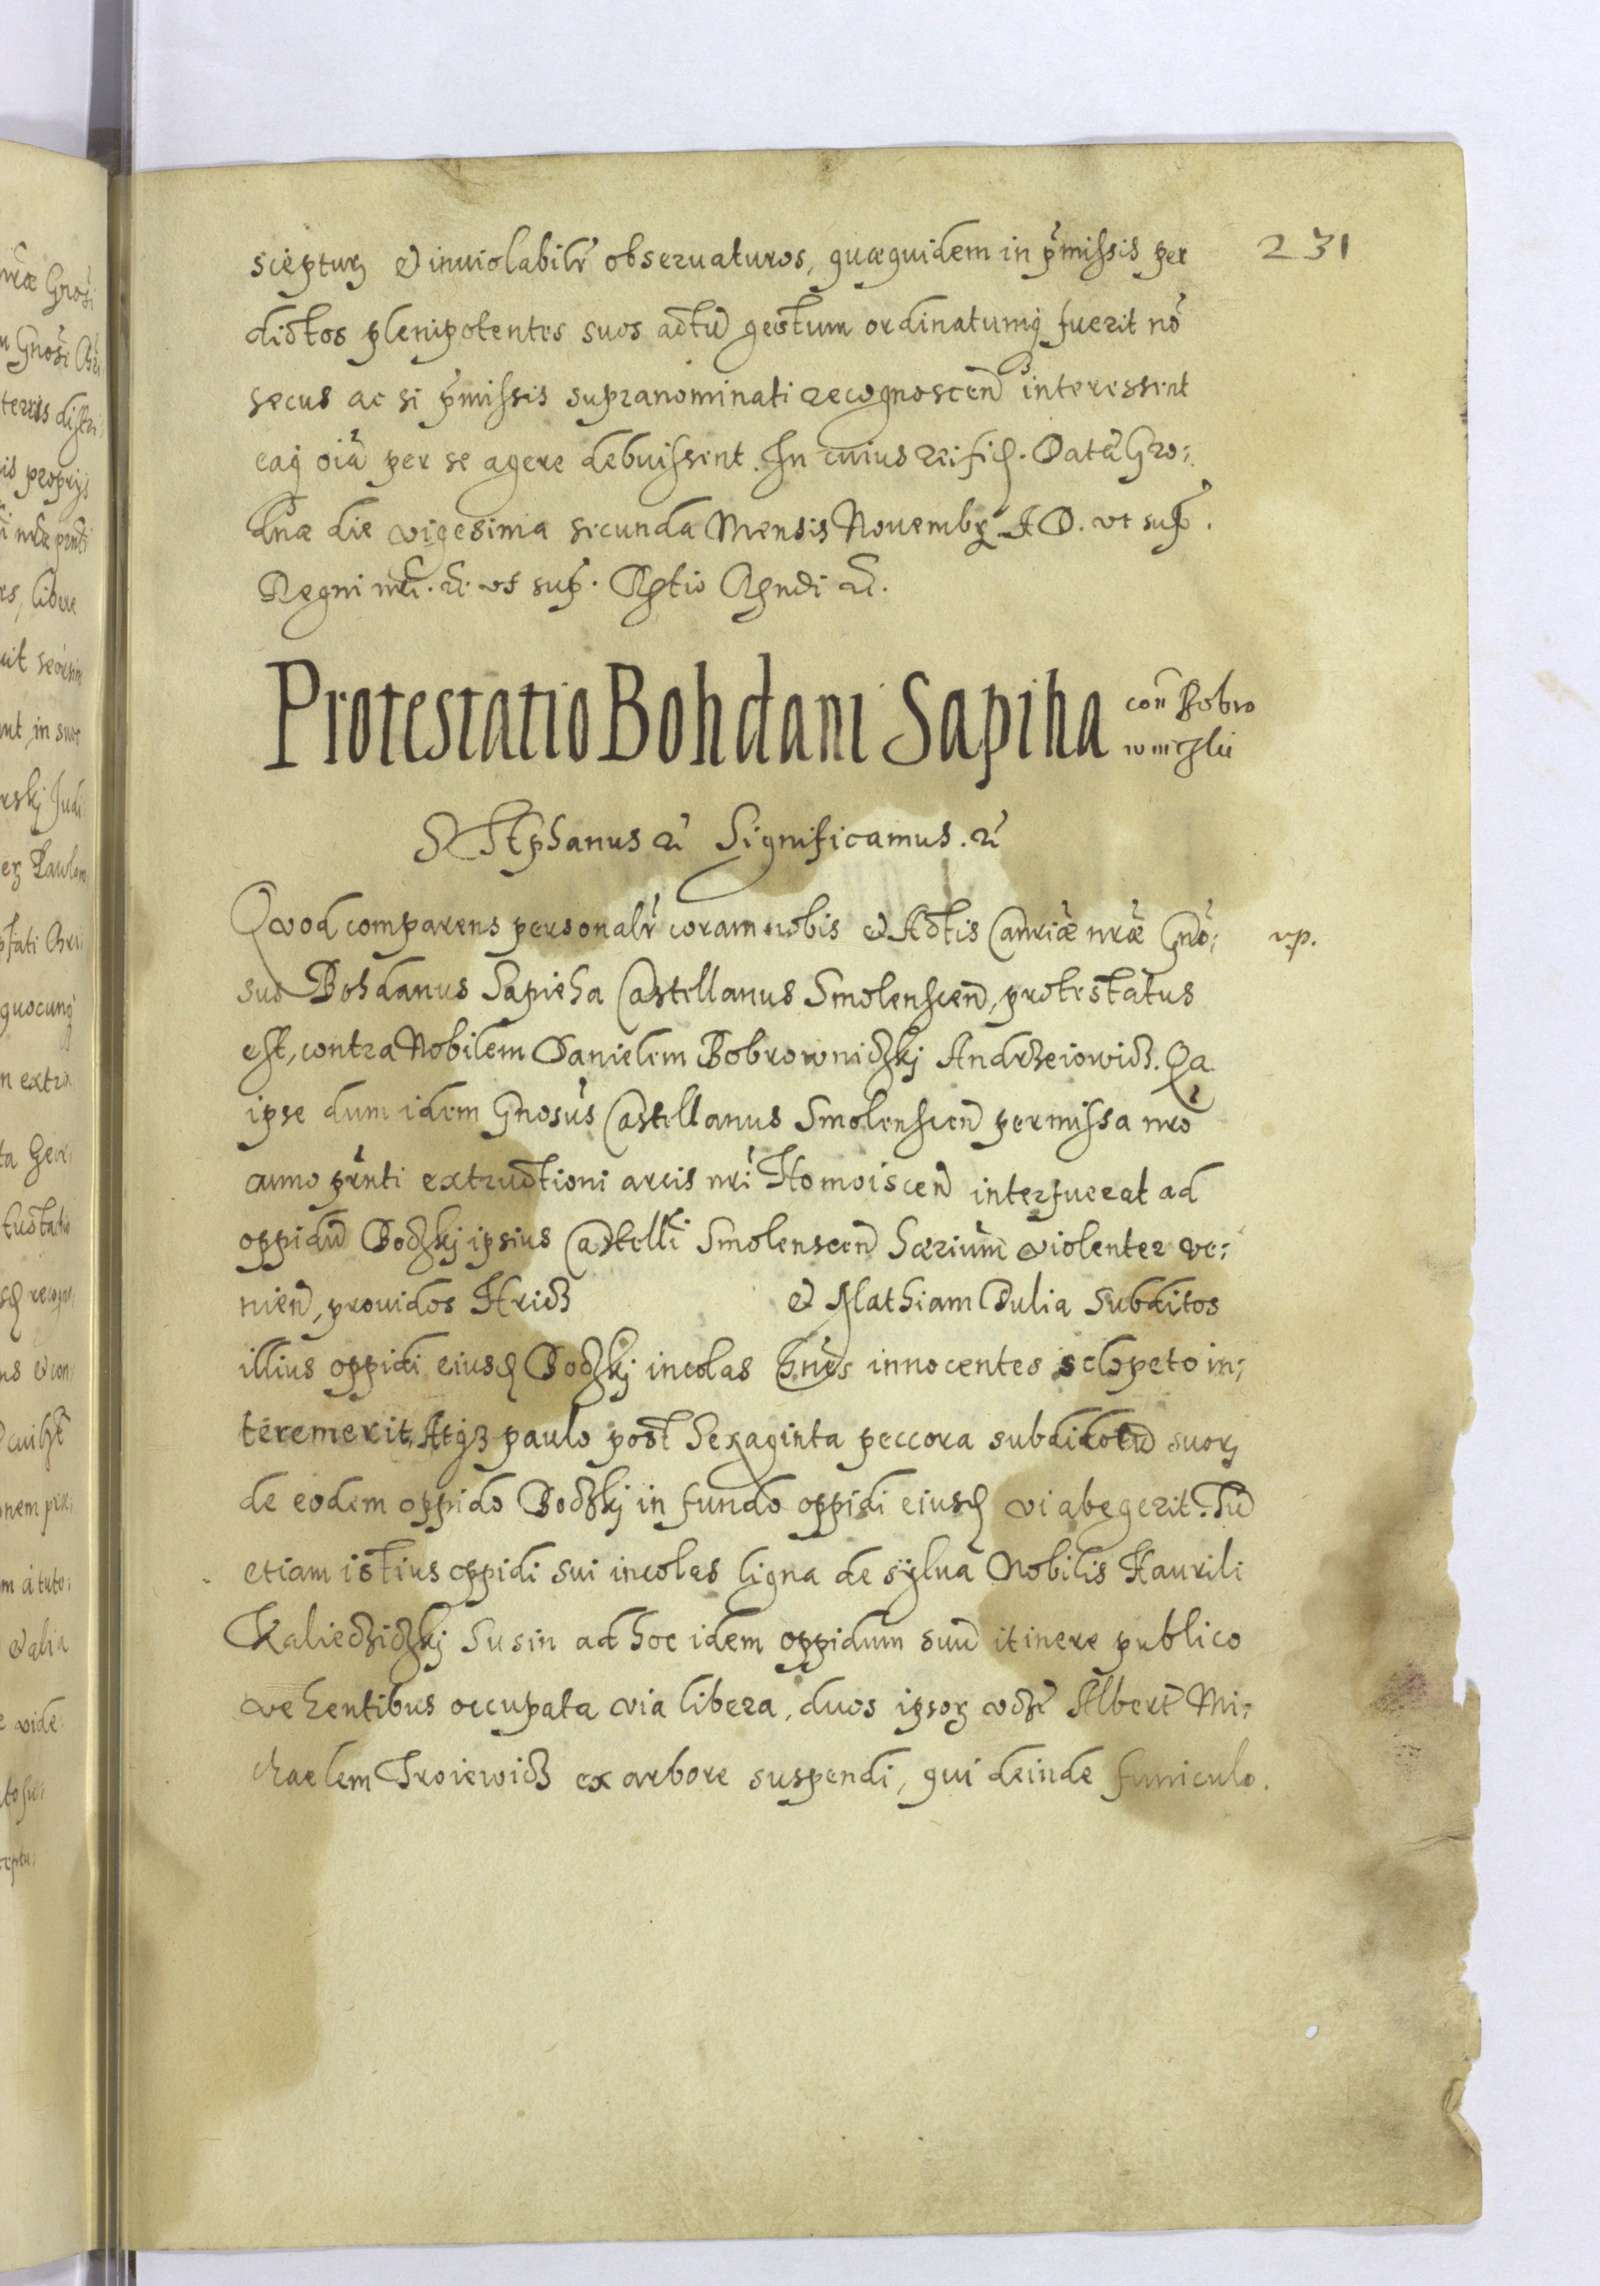 231
scepturʒ et inuiolabilr̃ obseruaturos, quæquidem in p̃missis per
dictos plenipotentes suos actũ gestum ordinatumq̃ fuerit nõ
secus ac si p̃missis supranominati recognoscen̄ interessent
eaq̃ oĩa per se agere debuissent. In cuius rei fiđ. Datũ Gro:
dnæ die vigesima secunda Mensis Novembrʒ A D. vt sup̃.
Regni nr̃i. &. vt sup̃. Rẽtio Rg̃ndi &.
Protestatio Bohdani Sapiha con̄ Bobro
wniczki
Stephanus & Significamus. &
Quod comparens personalr̃ coram nobis et Actis Canriæ nr̃æ Gnõ:
vp.
sus Bohdanus Sapieha Castellanus Smolenscen̄, protestatus
est, contra Nobilem Danielem Bobrowniczkj Andrzeiowicz. Qa
ipse dum idem Gnosus Castellanus Smolenscen̄ permissa nr̃o
anno p̃nti extructioni arcis nr̃i Homoiscen̄ interfuerat ad
oppidũ Boczkj ipsius Castelli Smolenscen̄ Hærium violenter ve:
nien̄, prouidos Hricz et Mathiam Dulia subditos
illius oppidi eiusđ Boczkj incolas hñes innocentes sclopeto in:
teremerit, Atqʒ paulo post Sexaginta peccora subditotũ suorʒ
de eodem oppido Boczkj in fundo oppidi eiusđ vi abegerit. Tũ
etiam istius oppidi sui incolas ligna de sylua Nobilis Haurili
Kalieczіczkj Susin ad hoc idem oppidum suũ itinere publico
vehentibus occupata via libera, duos ipsorʒ vczꝫ Albert̃ Mi:
chaelem Troiewicz ex arbore suspendi, qui deinde funiculo.